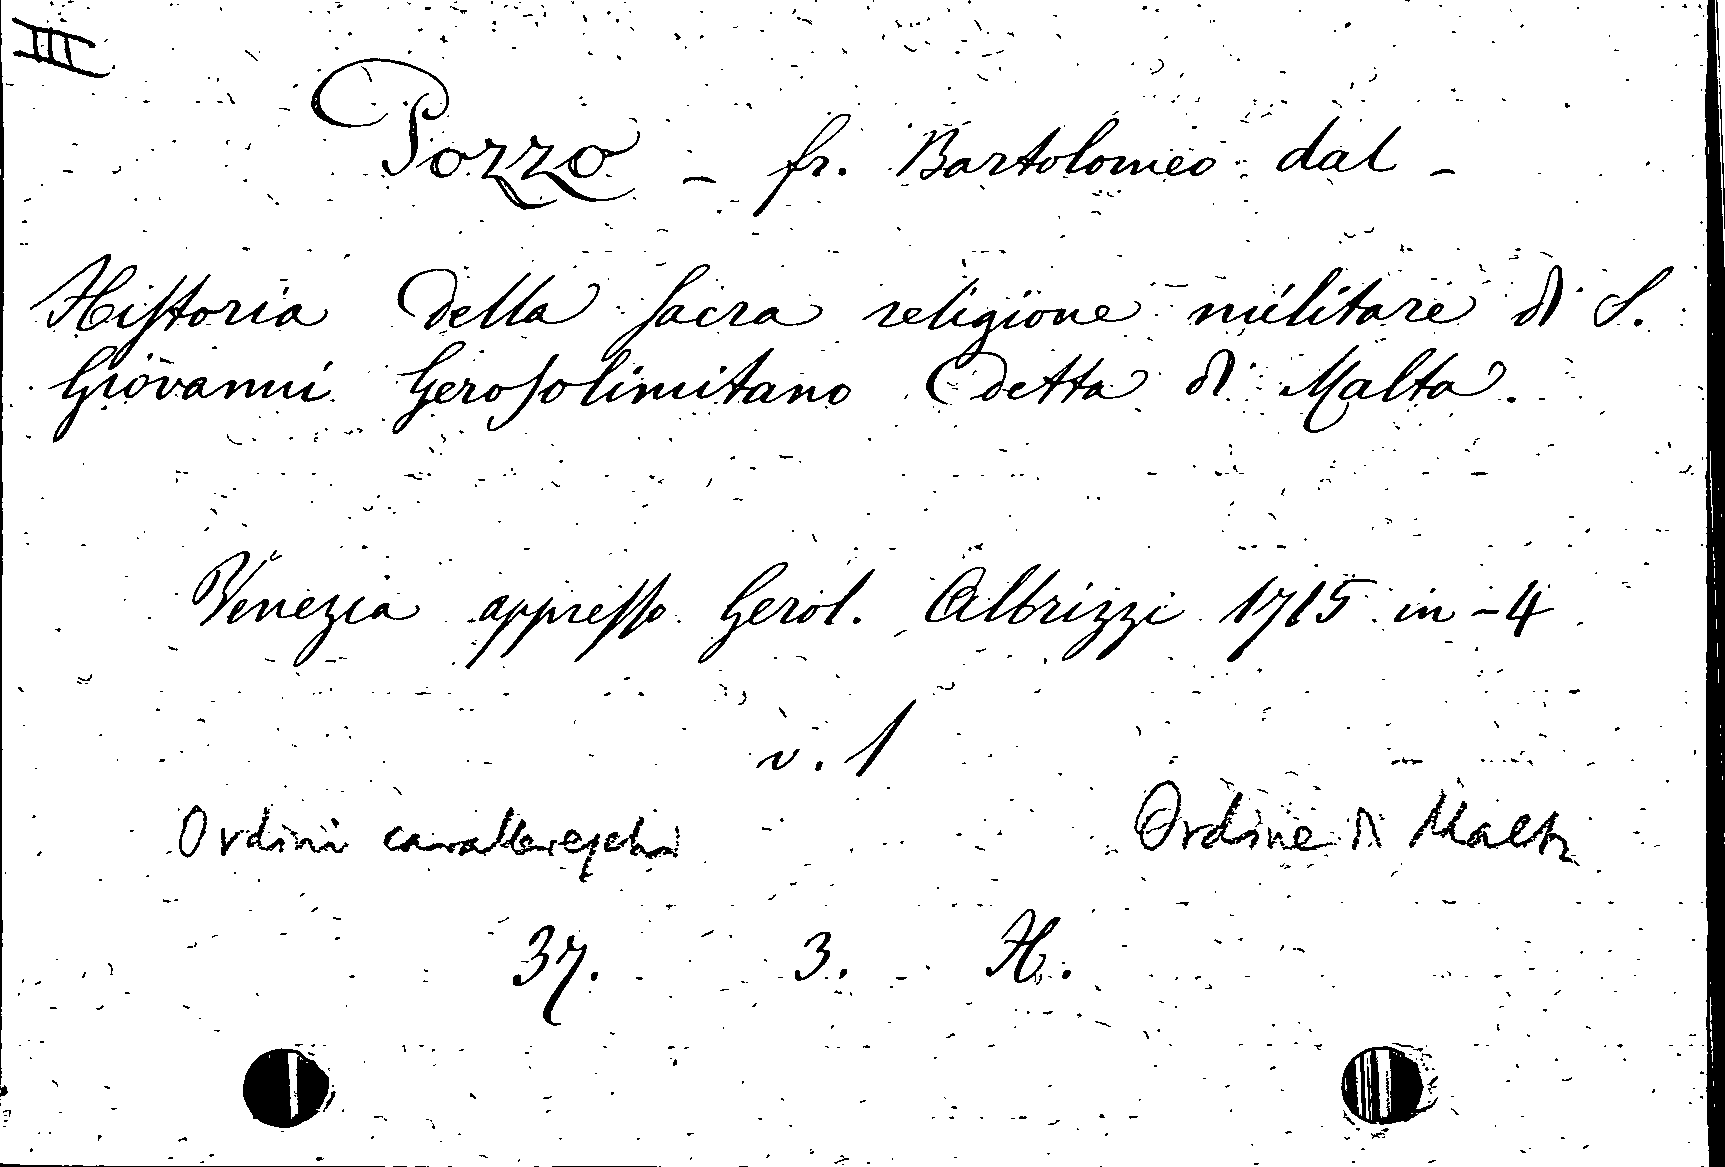 III
Pozzo - fr. Bartolomeo dal -
Hiſtoria della ſacra religione militare di S.
Giovanni Geroſolimitano detta di Malta.
Venezia appreſſo Gerol. Albrizzi 1715 in-4
v. 1
Ordini cavallereschi Ordine di Malta
37. 3. H.